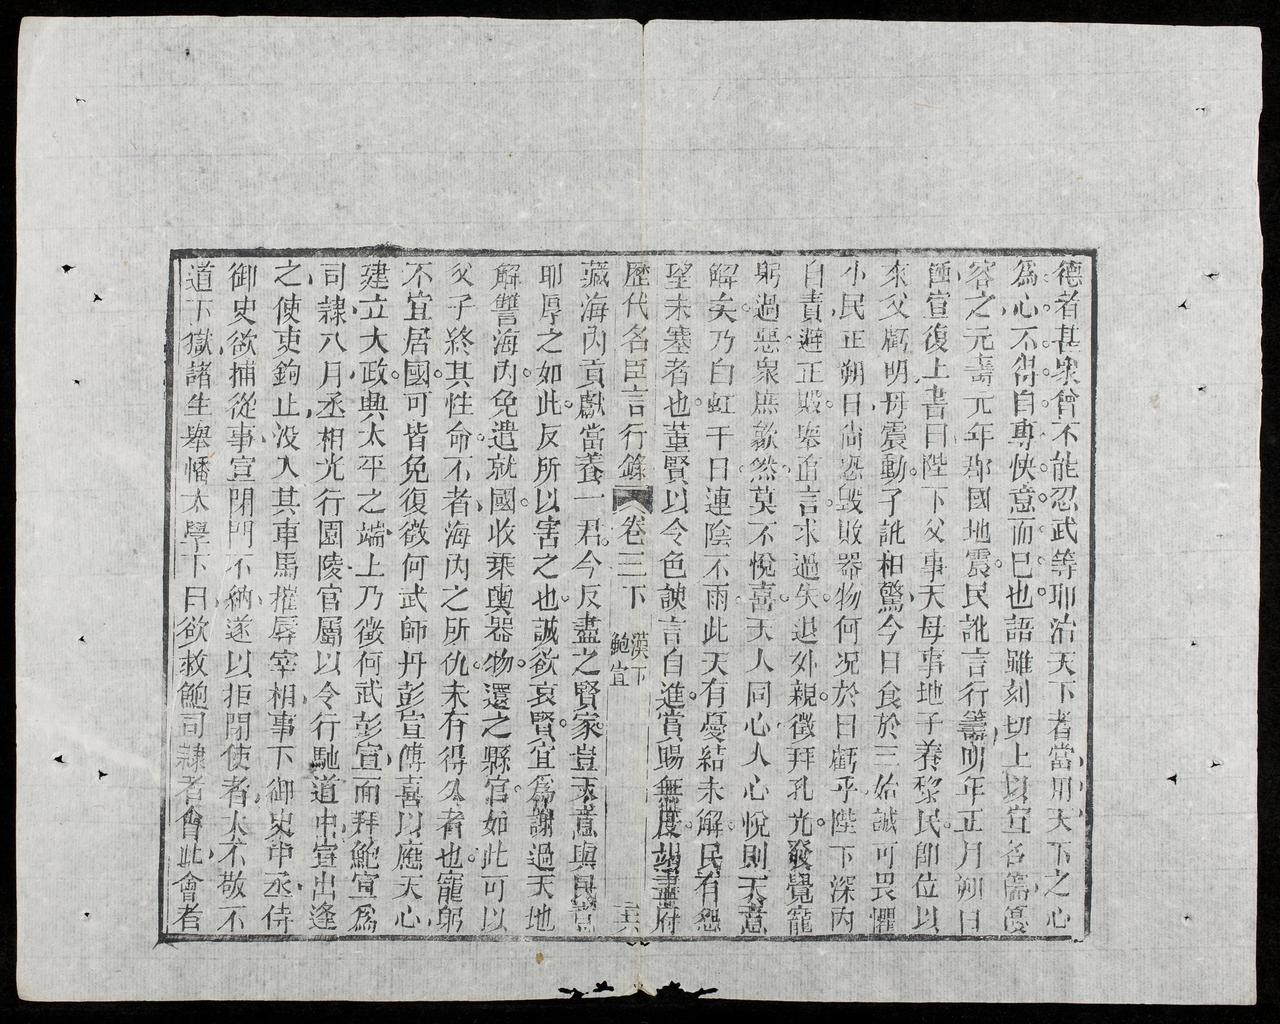 德者甚衆曾不能忍武等耶治天下者當用天下之心
爲心不得自專快意而已也語雖刻切上以宣名儒優
容之元壽元年郡國地震民訛言行籌明年正月朔日
蝕宣復上書曰陛下父事天母事地子養黎民卽位以
來父虧明母震動子訛相驚今日食於三始誠可畏懼
小民正朔日尙恐毁敗器物何况於日虧乎陛下深內
自責避正殿舉直言求過失退外親徵拜孔光發覺寵
躬過惡衆庶歙然莫不悅喜天人同心人心悅則天意
解矣乃白虹干日連陰不雨此天有憂結未解民有怨
望未塞者也董賢以令色諛言自進賞賜無度竭盡府
歷代名臣言行錄
卷三下
漢下
鮑宣
藏海內貢獻當養一君今反盡之賢家豈天意與民意
耶厚之如此反所以害之也誠欲哀賢宜爲謝過天地
解讐海內免遣就國收乘輿器物還之縣官如此可以
父子終其性命不者海內之所仇未有得久者也寵躬
不宜居國可皆免復徵何武師丹彭宣傅喜以應天心
建立大政興太平之端上乃徵何武彭宣而拜鮑宣爲
司隸八月丞相光行園陵官屬以令行馳道中宣出逢
之使吏鉤止沒入其車馬摧辱宰相事下御史中丞侍
御史欲捕從事宣閉門不納遂以拒閉使者大不敬不
道下獄諸生舉幡太學下曰欲救鮑司隸者會此會者